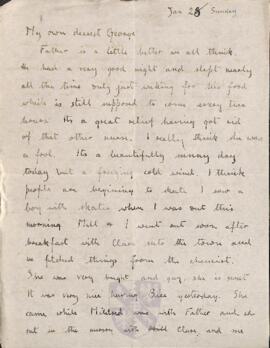 Jan 28 Sunday
My own dearest George
Father is a little better we all think.
He had a very good night and slept nearly
all the time only just waking for his food
which is still supposed to come every two
hours. Its a great relief having got rid
of that other nurse. I really think she was
a fool. Its a beautifully sunny day
today but a freezing cold wind. I think
people are beginning to skate. I saw a
boy with skates when I was out this
morning. Mill & I went out soon after
breakfast with Clare into the town and
we fetched things from the chemist.
She was very bright and gay, she is sweet
It was very nice having yesterday. She
came while Mildred was with Father and
out in the with Clare, and me